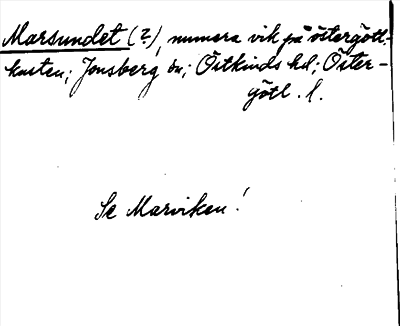 Marsundet (?), numera vik på östergötl.
kusten; Jonsberg sn; Östkinds hd; Öster-
götl. l.
Se Marviken!